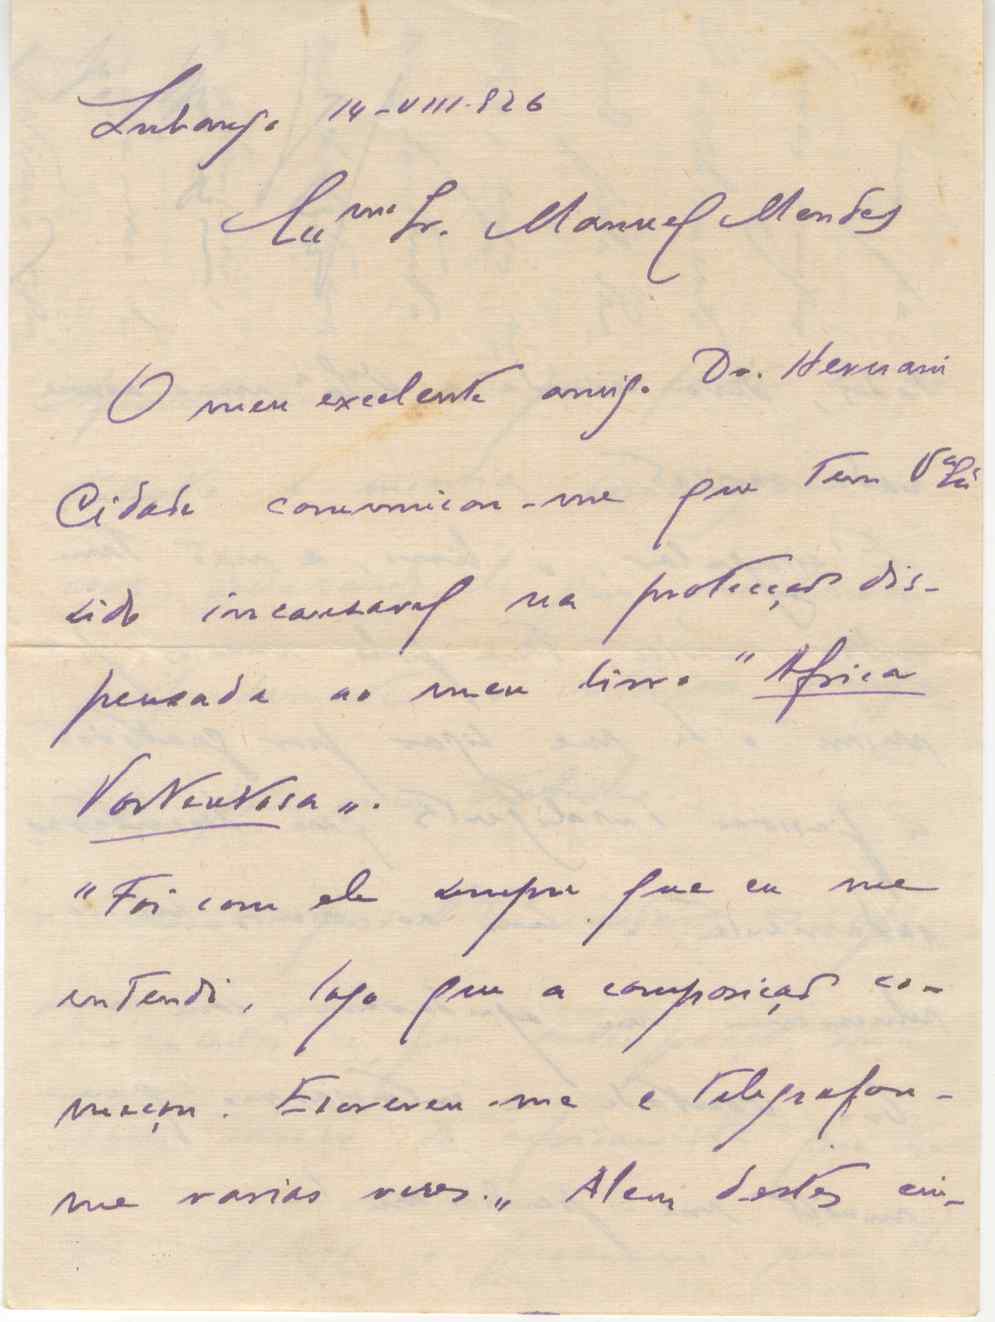 Lubango 14-VIII-926
Exmo Sr. Manuel Mendes
O meu excelente amigo Dr. Hernani
Cidade comunicou-me que tem V. Exa
sido incansavel na protecção dis-
pensada ao meu livro "Africa
Portentosa".
"Foi com ele sempre que eu me
entendi, logo que a composição co-
meçou. Escreveu-me e telegrafou-
me varias vezes." Alem destes